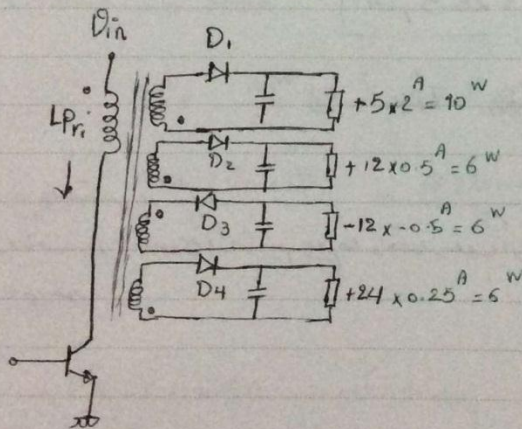 Vin
D1
LPri
+5×2A=10W
D2
+12×0.5A=6W
D3
-12×-0.5A=6W
D4
+24×0.25A=6W